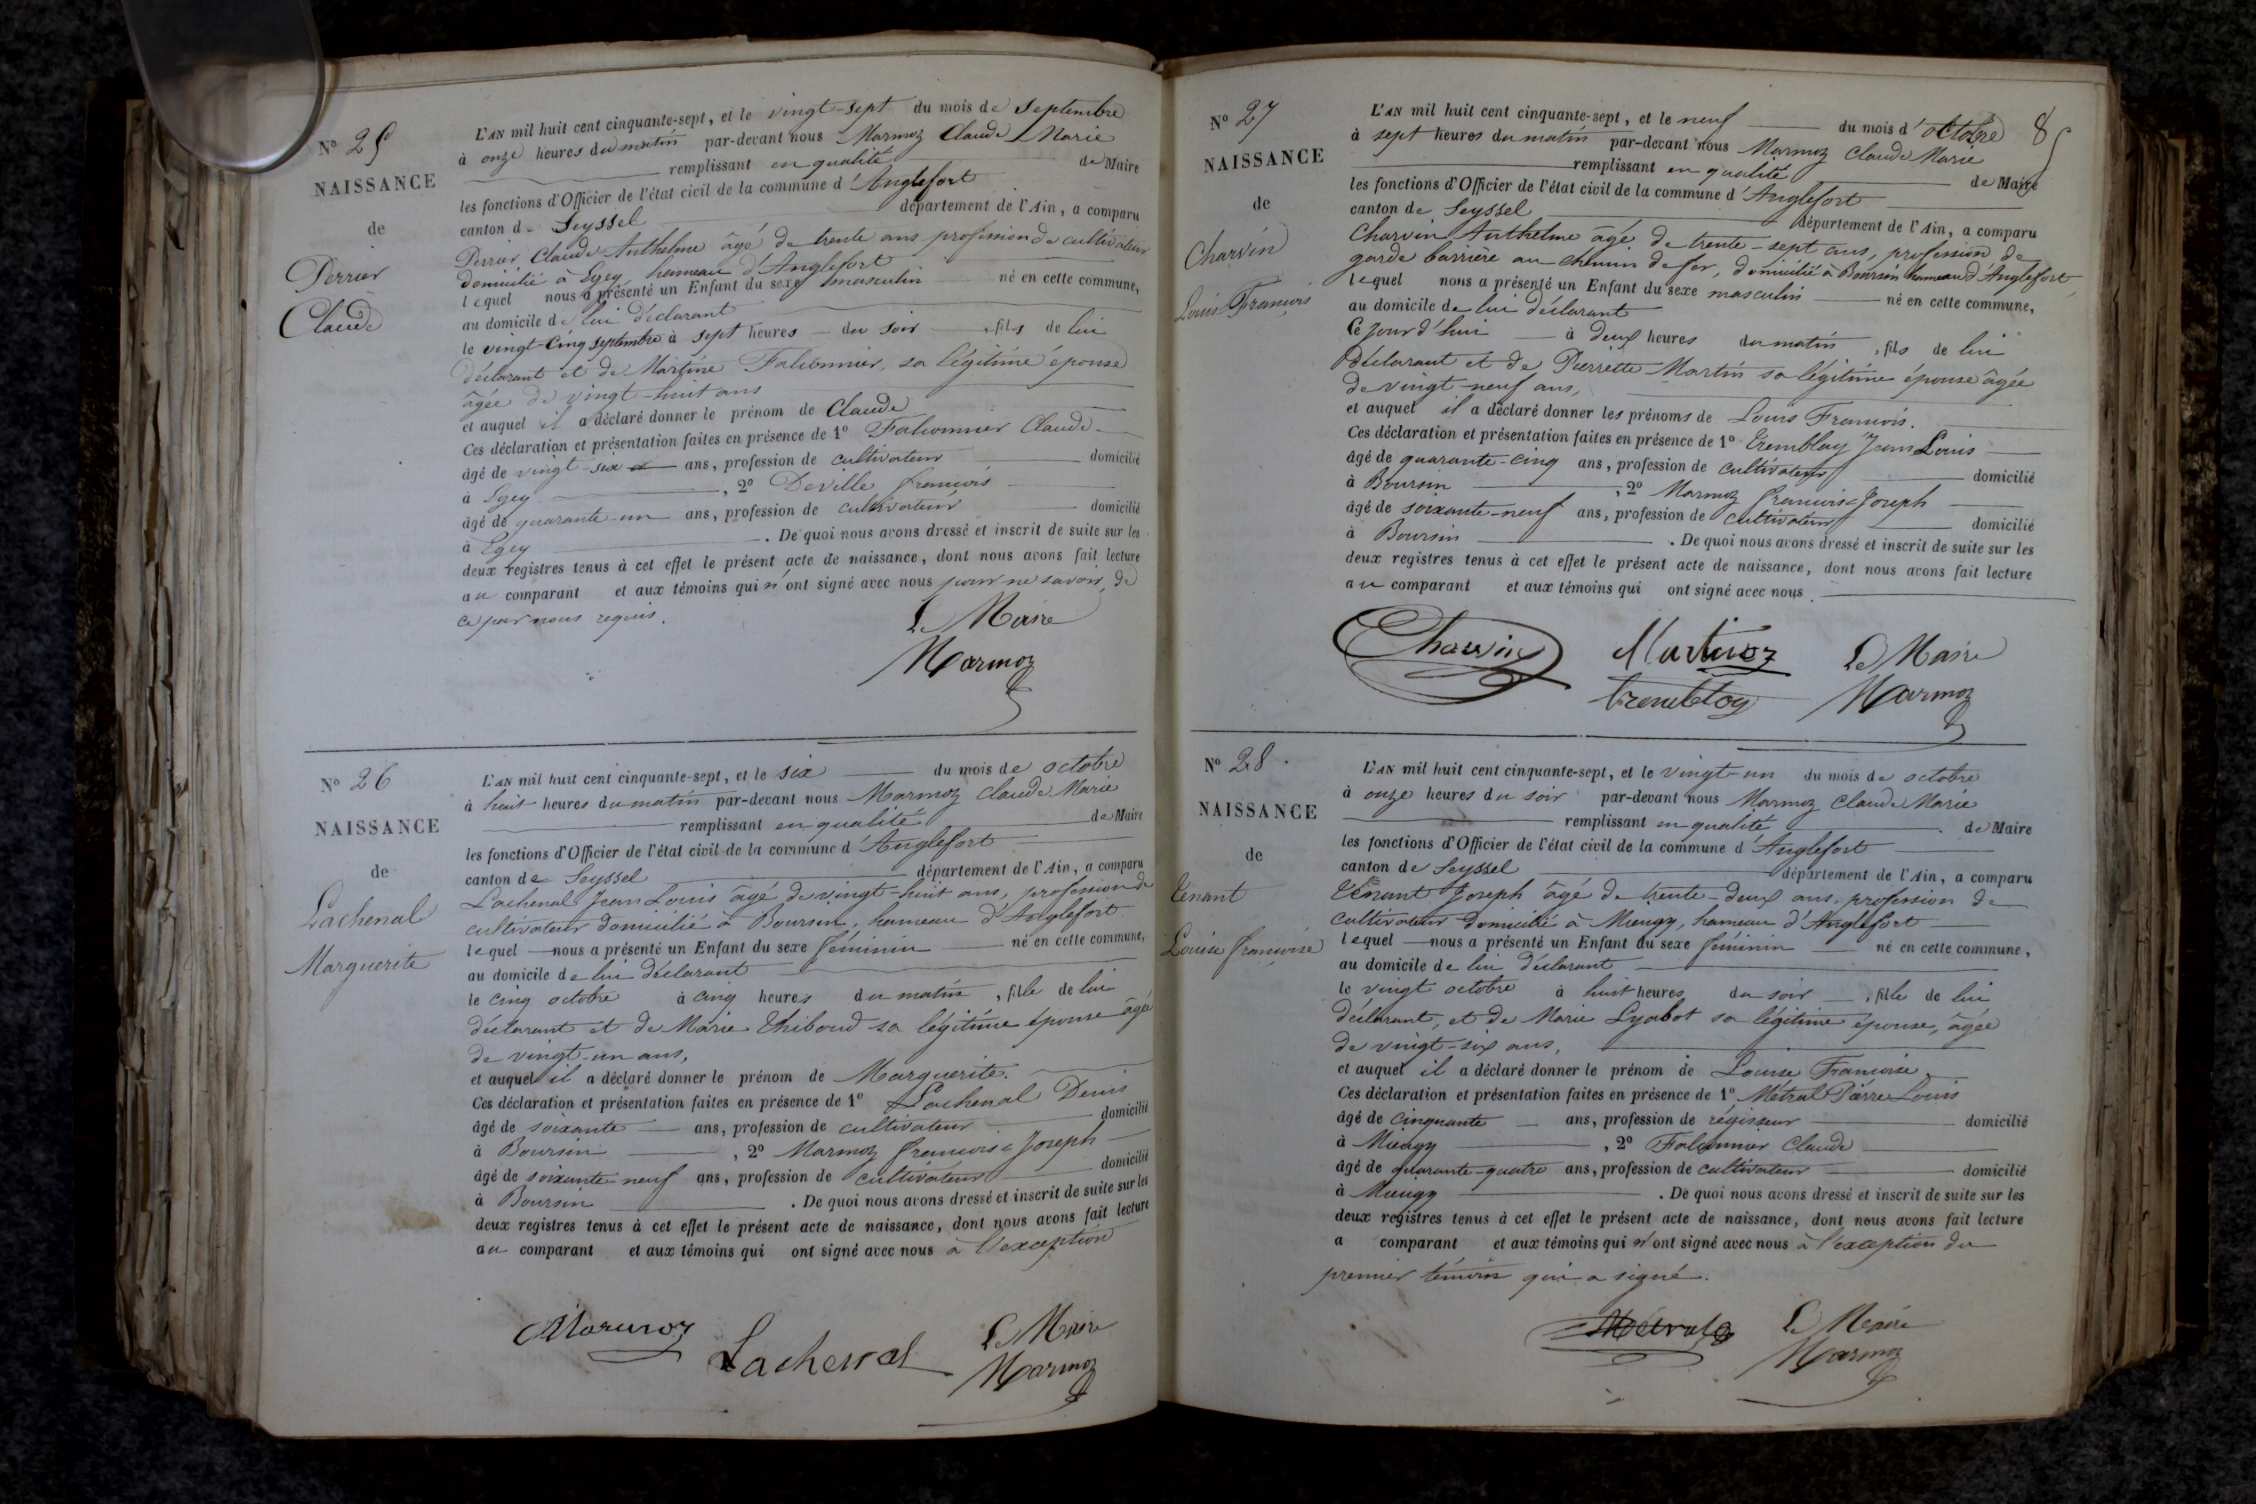 N° 25
NAISSANCE
de
Perrier
Claude
L'AN mil huit cent cinquante-sept, et le vingt-sept du mois de septembre
à onze heures du matin par-devant nous Marmoz Claude Marie
remplissant en qualité de Maire
les fonctions d'Officier de l'état civil de la commune d'Anglefort
canton de Seyssel département de l'Ain, a comparu
Perrier Claude Anthelme âgé de trente ans profession de cultivateur
domicilié à Egey hameau d'Anglefort
lequel nous a présenté un Enfant du sexe masculin né en cette commune,
au domicile de lui déclarant
le vingt-cinq septembre à sept heures du soir, fils de lui
déclarant et de Martine Falconnier, sa légitime épouse
âgée de vingt-huit ans
et auquel il a déclaré donner le prénom de Claude
Ces déclaration et présentation faites en présence de 1° Falconnier Claude
âgé de vingt-six ans, profession de cultivateur domicilié
à Egey, 2° Deville françois
âgé de quarante-un ans, profession de cultivateur domicilié
à Egey. De quoi nous avons dressé et inscrit de suite sur les
deux registres tenus à cet effet le présent acte de naissance, dont nous avons fait lecture
au comparant et aux témoins qui n'ont signé avec nous pour ne savoir, de
ce par nous requis.
Le Maire
Marmoz
N° 26
NAISSANCE
de
Lachenal
Marguerite
L'AN mil huit cent cinquante-sept, et le six du mois de octobre
à huit heures du matin par-devant nous Marmoz Claude Marie
remplissant en qualité de Maire
les fonctions d'Officier de l'état civil de la commune d'Anglefort
canton de Seyssel département de l'Ain, a comparu
Lachenal Jean Louis âgé de vingt-huit ans, profession de
cultivateur domicilié à Boursin, hameau d'Anglefort
lequel nous a présenté un Enfant du sexe féminin né en cette commune,
au domicile de lui déclarant
le cinq octobre à cinq heures du matin, fille de lui
déclarant et de Marie Thiboud sa légitime épouse âgée
de vingt-un ans,
et auquel il a déclaré donner le prénom de Marguerite.
Ces déclaration et présentation faites en présence de 1° Lachenal Denis
âgé de soixante ans, profession de cultivateur domicilié
à Boursin, 2° Marmoz françois Joseph
âgé de soixante-neuf ans, profession de cultivateur domicilié
à Boursin. De quoi nous avons dressé et inscrit de suite sur les
deux registres tenus à cet effet le présent acte de naissance, dont nous avons fait lecture
au comparant et aux témoins qui ont signé avec nous à l'exception
Marmoz Lachenal Le Maire
Marmoz
85
N° 27
NAISSANCE
de
Charvin
Louis François
L'AN mil huit cent cinquante-sept, et le neuf du mois d'octobre
à sept heures du matin par-devant nous Marmoz Claude Marie
remplissant en qualité de Maire
les fonctions d'Officier de l'état civil de la commune d'Anglefort
canton de Seyssel département de l'Ain, a comparu
Charvin Anthelme âgé de trente-sept ans, profession de
garde barrière au chemin de fer, domicilié à Boursin hameau d'Anglefort
lequel nous a présenté un Enfant du sexe masculin né en cette commune,
au domicile de lui déclarant
Ce jour d'hui à deux heures du matin, fils de lui
Déclarant et de Pierrette Martin sa légitime épouse âgée
de vingt-neuf ans,
et auquel il a déclaré donner les prénoms de Louis François.
Ces déclaration et présentation faites en présence de 1° Tremblay Jean Louis
âgé de quarante-cinq ans, profession de cultivateur domicilié
à Boursin, 2° Marmoz françois Joseph
âgé de soixante-neuf ans, profession de cultivateur domicilié
à Boursin. De quoi nous avons dressé et inscrit de suite sur les
deux registres tenus à cet effet le présent acte de naissance, dont nous avons fait lecture
au comparant et aux témoins qui ont signé avec nous.
Charvin Le Maire
Marmoz
N° 28
NAISSANCE
de
Tenant
Louise françoise
L'AN mil huit cent cinquante-sept, et le vingt-un du mois de octobre
à onze heures du soir par-devant nous Marmoz Claude Marie
remplissant en qualité de Maire
les fonctions d'Officier de l'état civil de la commune d'Anglefort
canton de Seyssel département de l'Ain, a comparu
Tenant Joseph âgé de trente-deux ans, profession de
cultivateur domicilié à Mieugy, hameau d'Anglefort
lequel nous a présenté un Enfant du sexe féminin né en cette commune,
au domicile de lui déclarant
le vingt octobre à huit heures du soir, fille de lui
déclarant, et de Marie Lyabot sa légitime épouse, âgée
de vingt-six ans,
et auquel il a déclaré donner le prénom de Louise Françoise
Ces déclaration et présentation faites en présence de 1° Métral Pierre Louis
âgé de cinquante ans, profession de régisseur domicilié
à Mieugy, 2° Falconnier Claude
âgé de quarante-quatre ans, profession de cultivateur domicilié
à Mieugy. De quoi nous avons dressé et inscrit de suite sur les
deux registres tenus à cet effet le présent acte de naissance, dont nous avons fait lecture
a comparant et aux témoins qui n'ont signé avec nous à l'exception du
premier témoin qui a signé.
Métral Le Maire
Marmoz